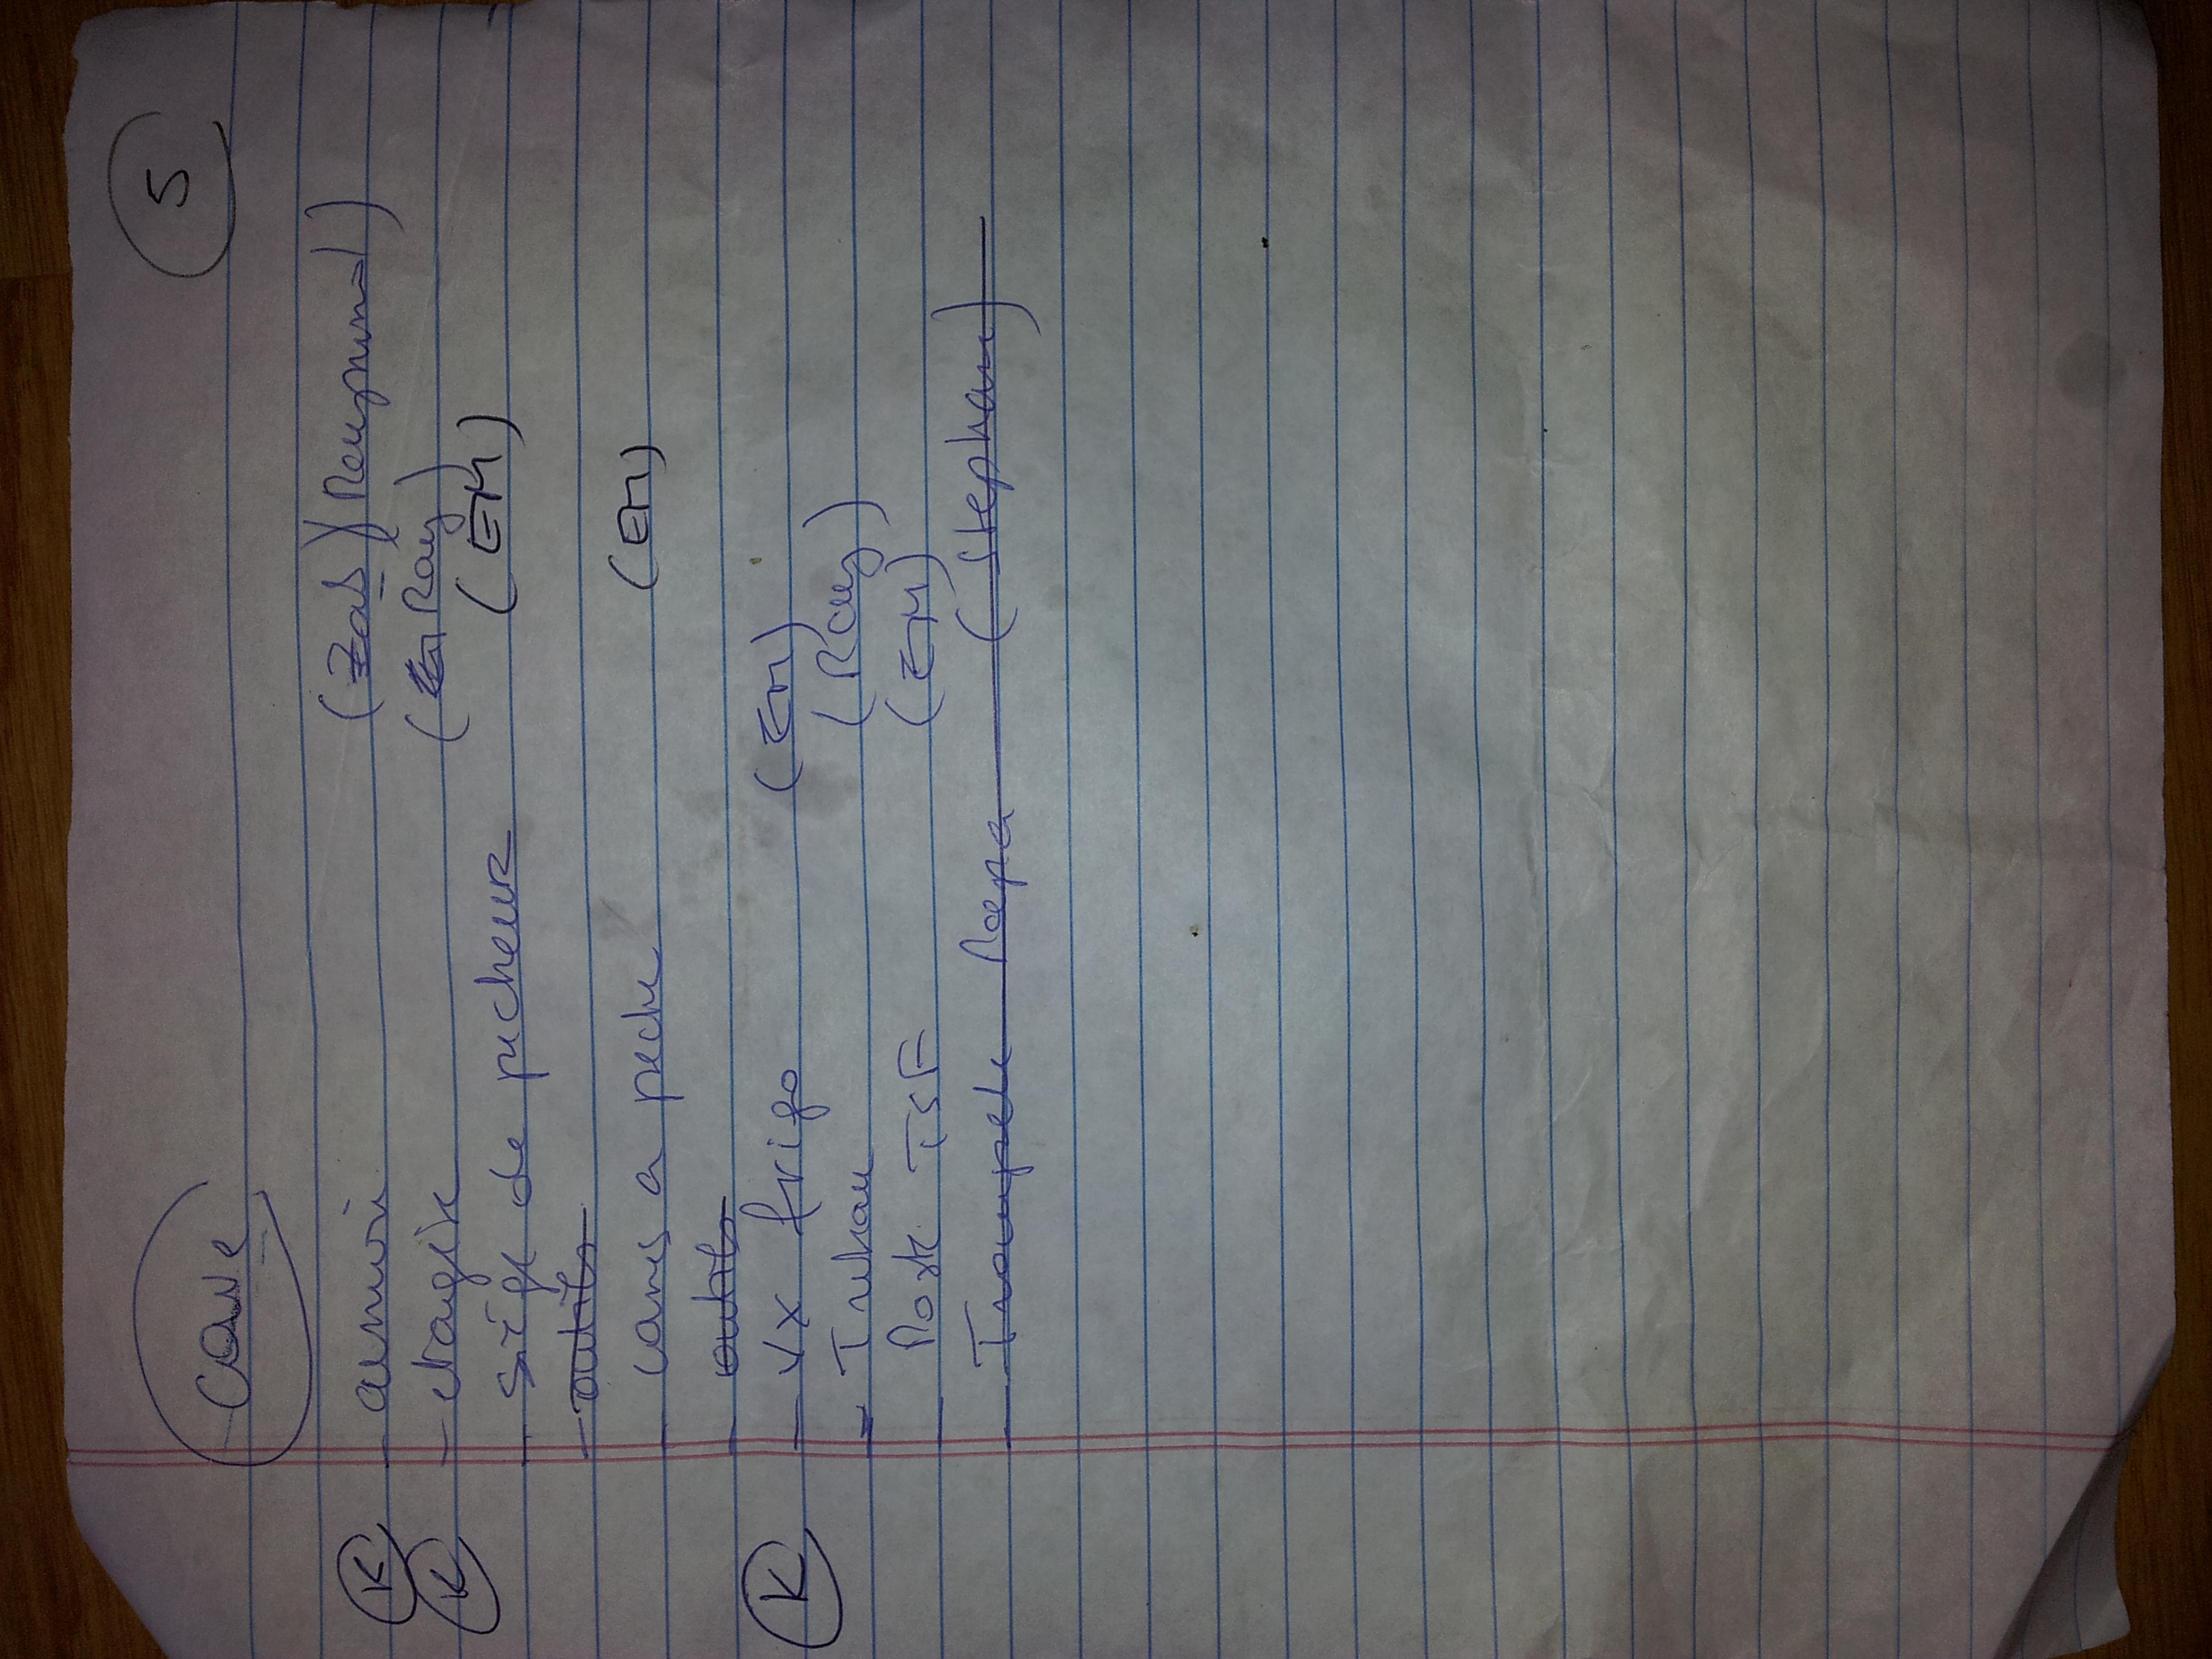 5
Cave
K - armoir (Zas) (Raymond)
K - etagère (Ray)
- siège de pecheur (EM)
- outils
- cans a peche (EM)
- outils
K - Vx frigo (EM)
- Treteau (Ray)
- Post TSF (EM)
- Trompete Papa (Stephan)